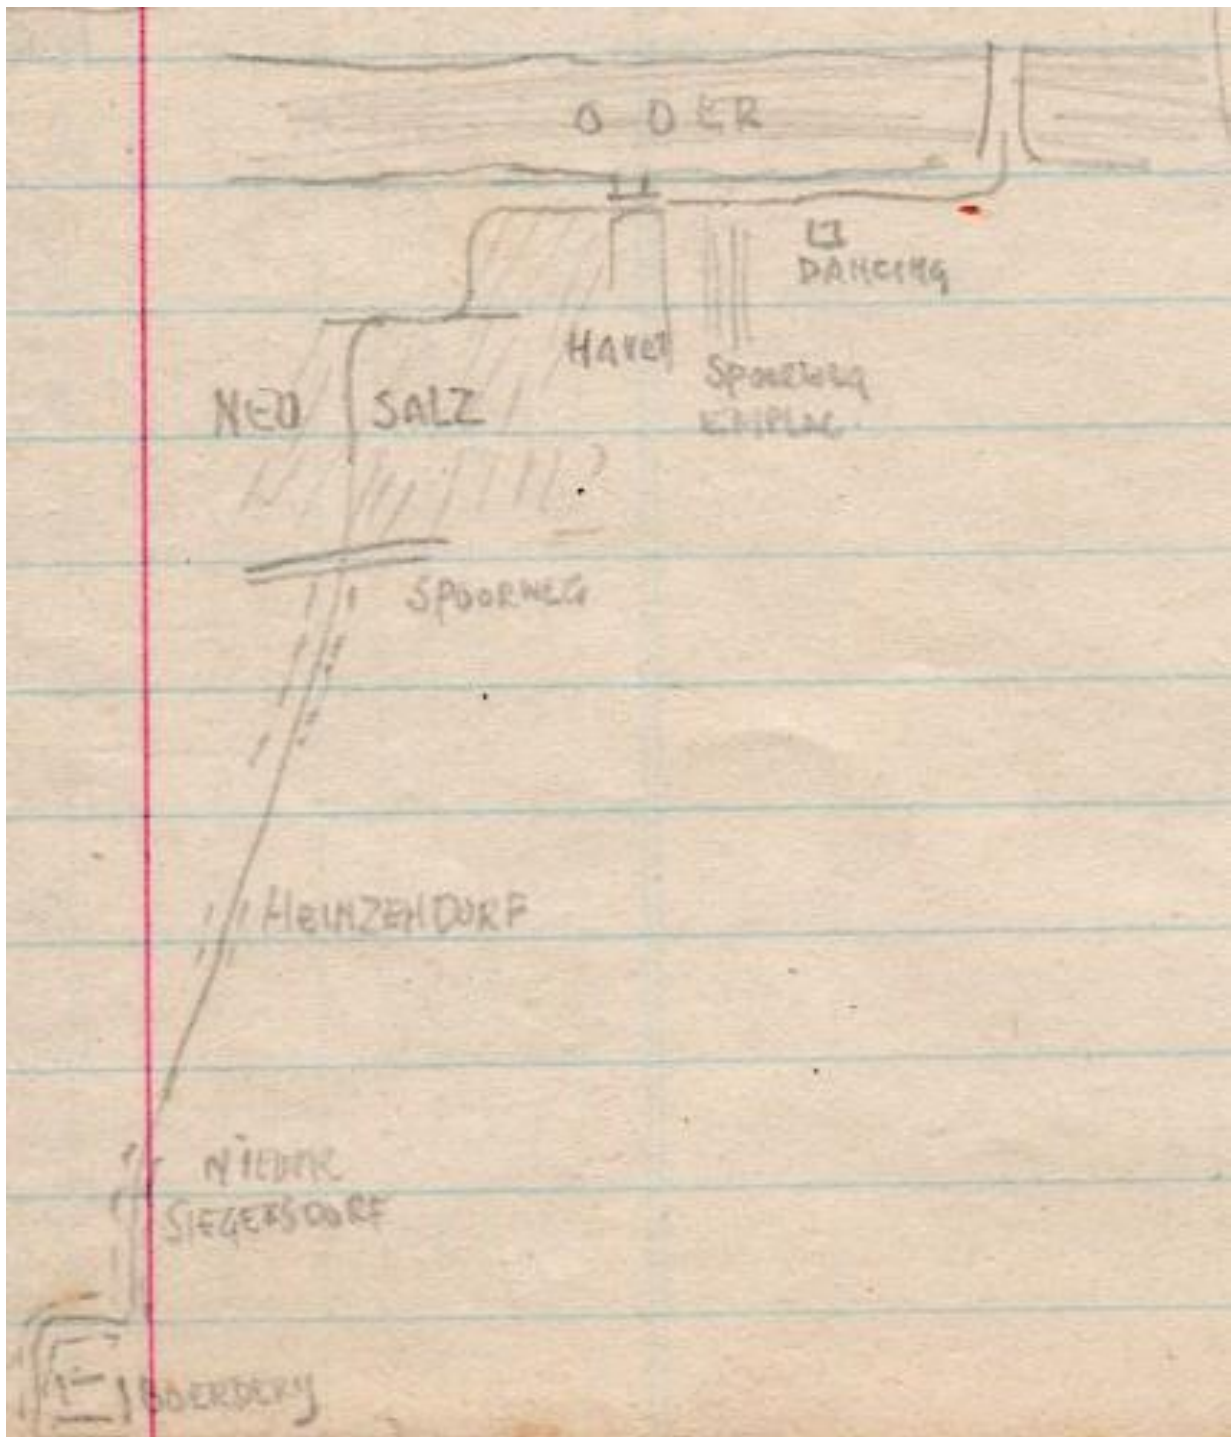 ODER
DANCING
HAVEN
SPOORWEG
EMPLAC.
NEU SALZ
SPOORWEG
HEINZENDORF
NIEDER
SIEGERSDORF
BOERDERIJ